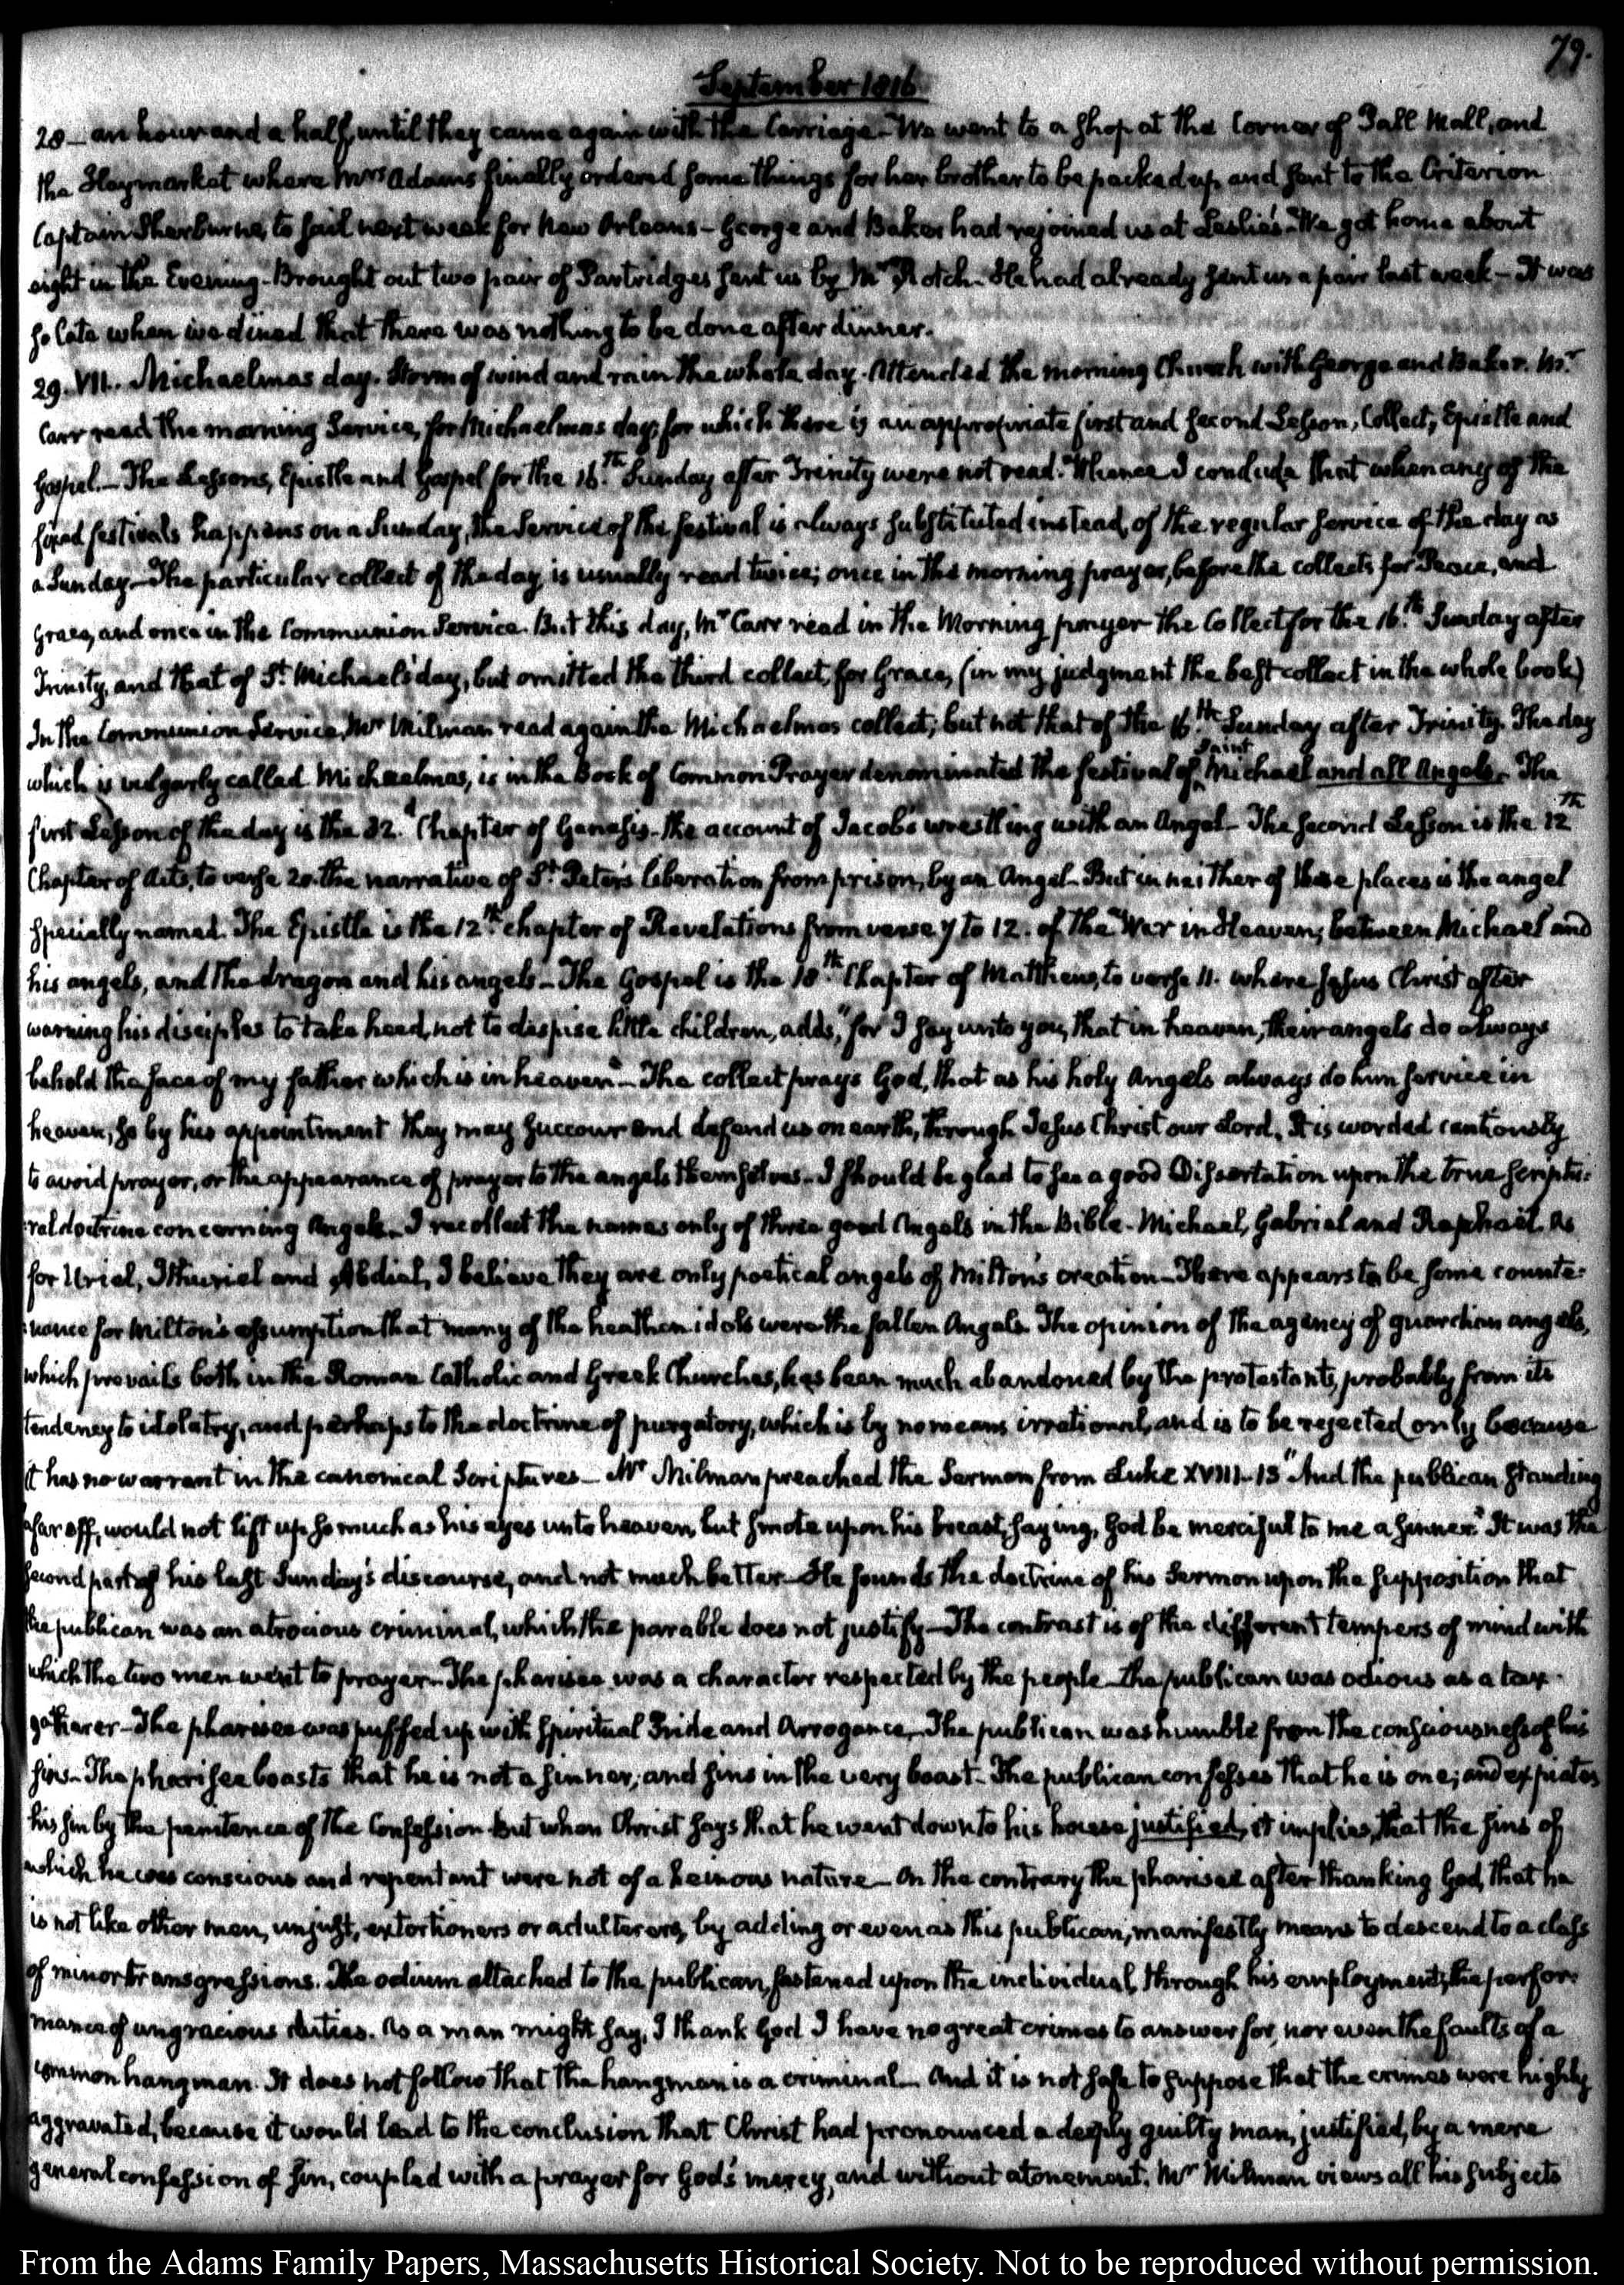 79.
September 1816
28 — an hour and a half, until they came again with the Carriage — We went to a shop at the Corner of Pall Mall, and
the Haymarket where Mrs Adams finally ordered some things for her brother to be packed up and sent to the Criterion
Captain Sherburne, to sail next week for New Orleans — George and Baker had rejoined us at Leslie's — We got home about
eight in the Evening — Brought out two pair of Partridges sent us by Mr Rotch — He had already sent us a pair last week — It was
so late when we dined that there was nothing to be done after dinner.
29. VII. Michaelmas day. Storm of wind and rain the whole day. Attended the morning Church with George and Baker. Mr
Carr read the morning Service, for Michaelmas day; for which there is an appropriate first and second Lesson, Collect, Epistle and
Gospel. — The Lessons, Epistle and Gospel for the 16.th Sunday after Trinity were not read. Whence I conclude that when any of the
fixed festivals happens on a Sunday, the Service of the festival is always substituted instead, of the regular service of the day as
a Sunday — The particular collect of the day is usually read twice; once in the morning prayer, before the collects for Peace, and
Grace, and once in the Communion Service. But this day, Mr Carr read in the Morning prayer the Collect for the 16.th Sunday after
Trinity, and that of St Michael's day, but omitted the third collect, for Grace, (in my judgment the best collect in the whole book)
In the Communion Service, Mr Milman read again the Michaelmas collect; but not that of the 16.th Sunday after Trinity. The day
which is vulgarly called Michaelmas, is in the Book of Common Prayer denominated the festival of Saint Michael and all Angels. The
first Lesson of the day is the 32.d Chapter of Genesis — the account of Jacob's wrestling with an Angel — The second Lesson is the 12th
Chapter of Acts, to verse 20. the narrative of St Peter's liberation from prison, by an Angel — But in neither of these places is the angel
specially named. The Epistle is the 12.th chapter of Revelations from verse 7 to 12. of the War in Heaven, between Michael and
his angels, and the dragon and his angels — The Gospel is the 18.th Chapter of Matthew, to verse 11. where Jesus Christ after
warning his disciples to take heed, not to despise little children, adds, "for I say unto you, that in heaven, their angels do always
behold the face of my father which is in heaven" — The collect prays God, that as his holy Angels always do him service in
heaven, so by his appointment they may succour and defend us on earth, through Jesus Christ our Lord. It is worded cautiously
to avoid prayer, or the appearance of prayer to the angels themselves — I should be glad to see a good Dissertation upon the true scriptu:
:ral doctrine concerning Angels — I recollect the names only of three good Angels in the Bible. Michael, Gabriel and Raphael. As
for Uriel, Ithuriel and Abdiel, I believe they are only poetical angels of Milton's creation — There appears to be some counte:
:nance for Milton's assumption that many of the heathen idols were the fallen Angels. The opinion of the agency of guardian angels,
which prevails both in the Roman Catholic and Greek Churches, has been much abandoned by the protestants, probably from its
tendency to idolatry, and perhaps to the doctrine of purgatory, which is by no means irrational, and is to be rejected only because
it has no warrant in the canonical Scriptures — Mr Milman preached the Sermon from Luke XVIII. 13 "And the publican standing
afar off, would not lift up so much as his eyes unto heaven, but smote upon his breast, saying, God be merciful to me a sinner." It was the
second part of his last Sunday's discourse, and not much better — He founds the doctrine of his Sermon upon the supposition that
the publican was an atrocious criminal, which the parable does not justify — The contrast is of the different tempers of mind with
which the two men went to prayer — The pharisee was a character respected by the people — the publican was odious as a tax
gatherer — The pharisee was puffed up with spiritual Pride and Arrogance — The publican was humble from the consciousness of his
sins — The pharisee boasts that he is not a sinner; and sins in the very boast — The publican confesses that he is one; and expiates
his sin by the penitence of the Confession. But when Christ says that he went down to his house justified, it implies, that the sins of
which he was conscious and repentant were not of a heinous nature — On the contrary the pharisee after thanking God, that he
is not like other men, unjust, extortioners or adulterers, by adding or even as this publican, manifestly means to descend to a class
of minor transgressions. The odium attached to the publican, fastened upon the individual, through his employment, the perfor:
mance of ungracious duties. As a man might say, I thank God I have no great crimes to answer for, nor even the faults of a
common hangman. It does not follow that the hangman is a criminal — And it is not safe to suppose that the crimes were highly
aggravated, because it would lead to the conclusion that Christ had pronounced a deeply guilty man, justified, by a mere
general confession of sin, coupled with a prayer for God's mercy, and without atonement. Mr Milman views all his subjects
From the Adams Family Papers, Massachusetts Historical Society. Not to be reproduced without permission.